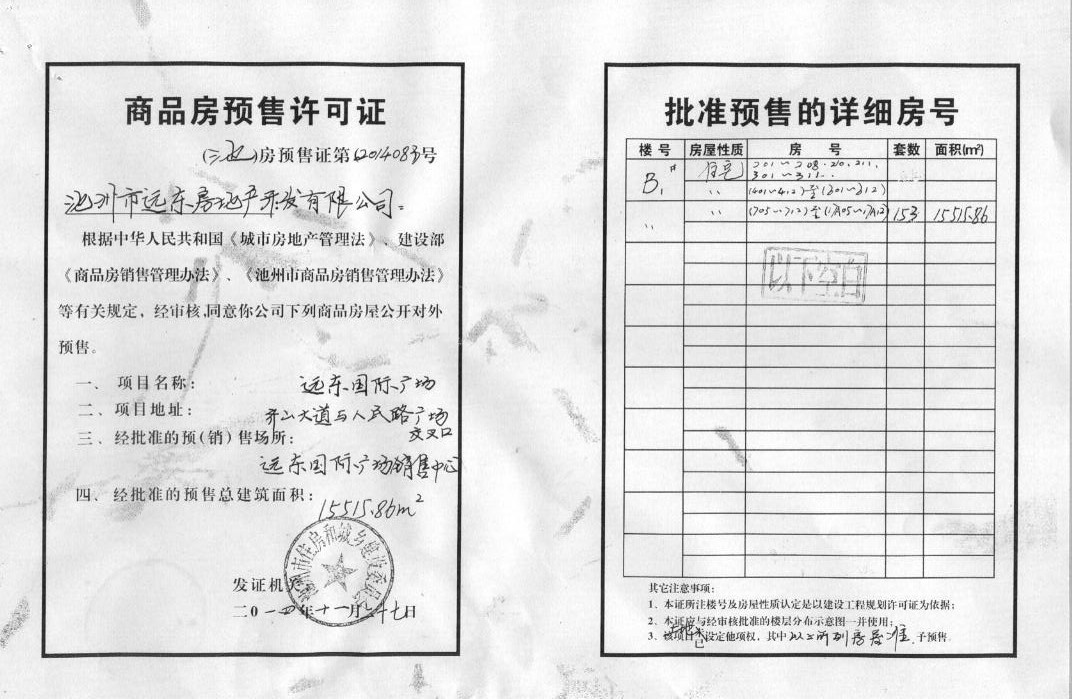 商品房预售许可证
(池)房预售证第(2014083)号
池州市远东房地产开发有限公司:
根据中华人民共和国《城市房地产管理法》、建设部
《商品房销售管理办法》、《池州市商品房销售管理办法》
等有关规定，经审核,同意你公司下列商品房屋公开对外
预售。
一、项目名称: 远东国际广场
二、项目地址: 齐山大道与人民路广场
交叉口
三、经批准的预(销)售场所:
远东国际广场销售中心
四、经批准的预售总建筑面积:
15515.86m²
池州市住房和城乡建设委员会
发证机关:
二0一四年十一月二十七日
批准预售的详细房号
楼号 房屋性质 房号 套数 面积(m²)
B1# 住宅 201~208.210.211.
301~311..
〃 (401~412)至(601~612)
〃 〃 (705~712)至(17A05~17A12) 153 15515.86
以下空白
其它注意事项:
1、本证所注楼号及房屋性质认定是以建设工程规划许可证为依据;
2、本证应与经审核批准的楼层分布示意图一并使用;
3、该项目 已设定他项权，其中以上所列房号准予预售.